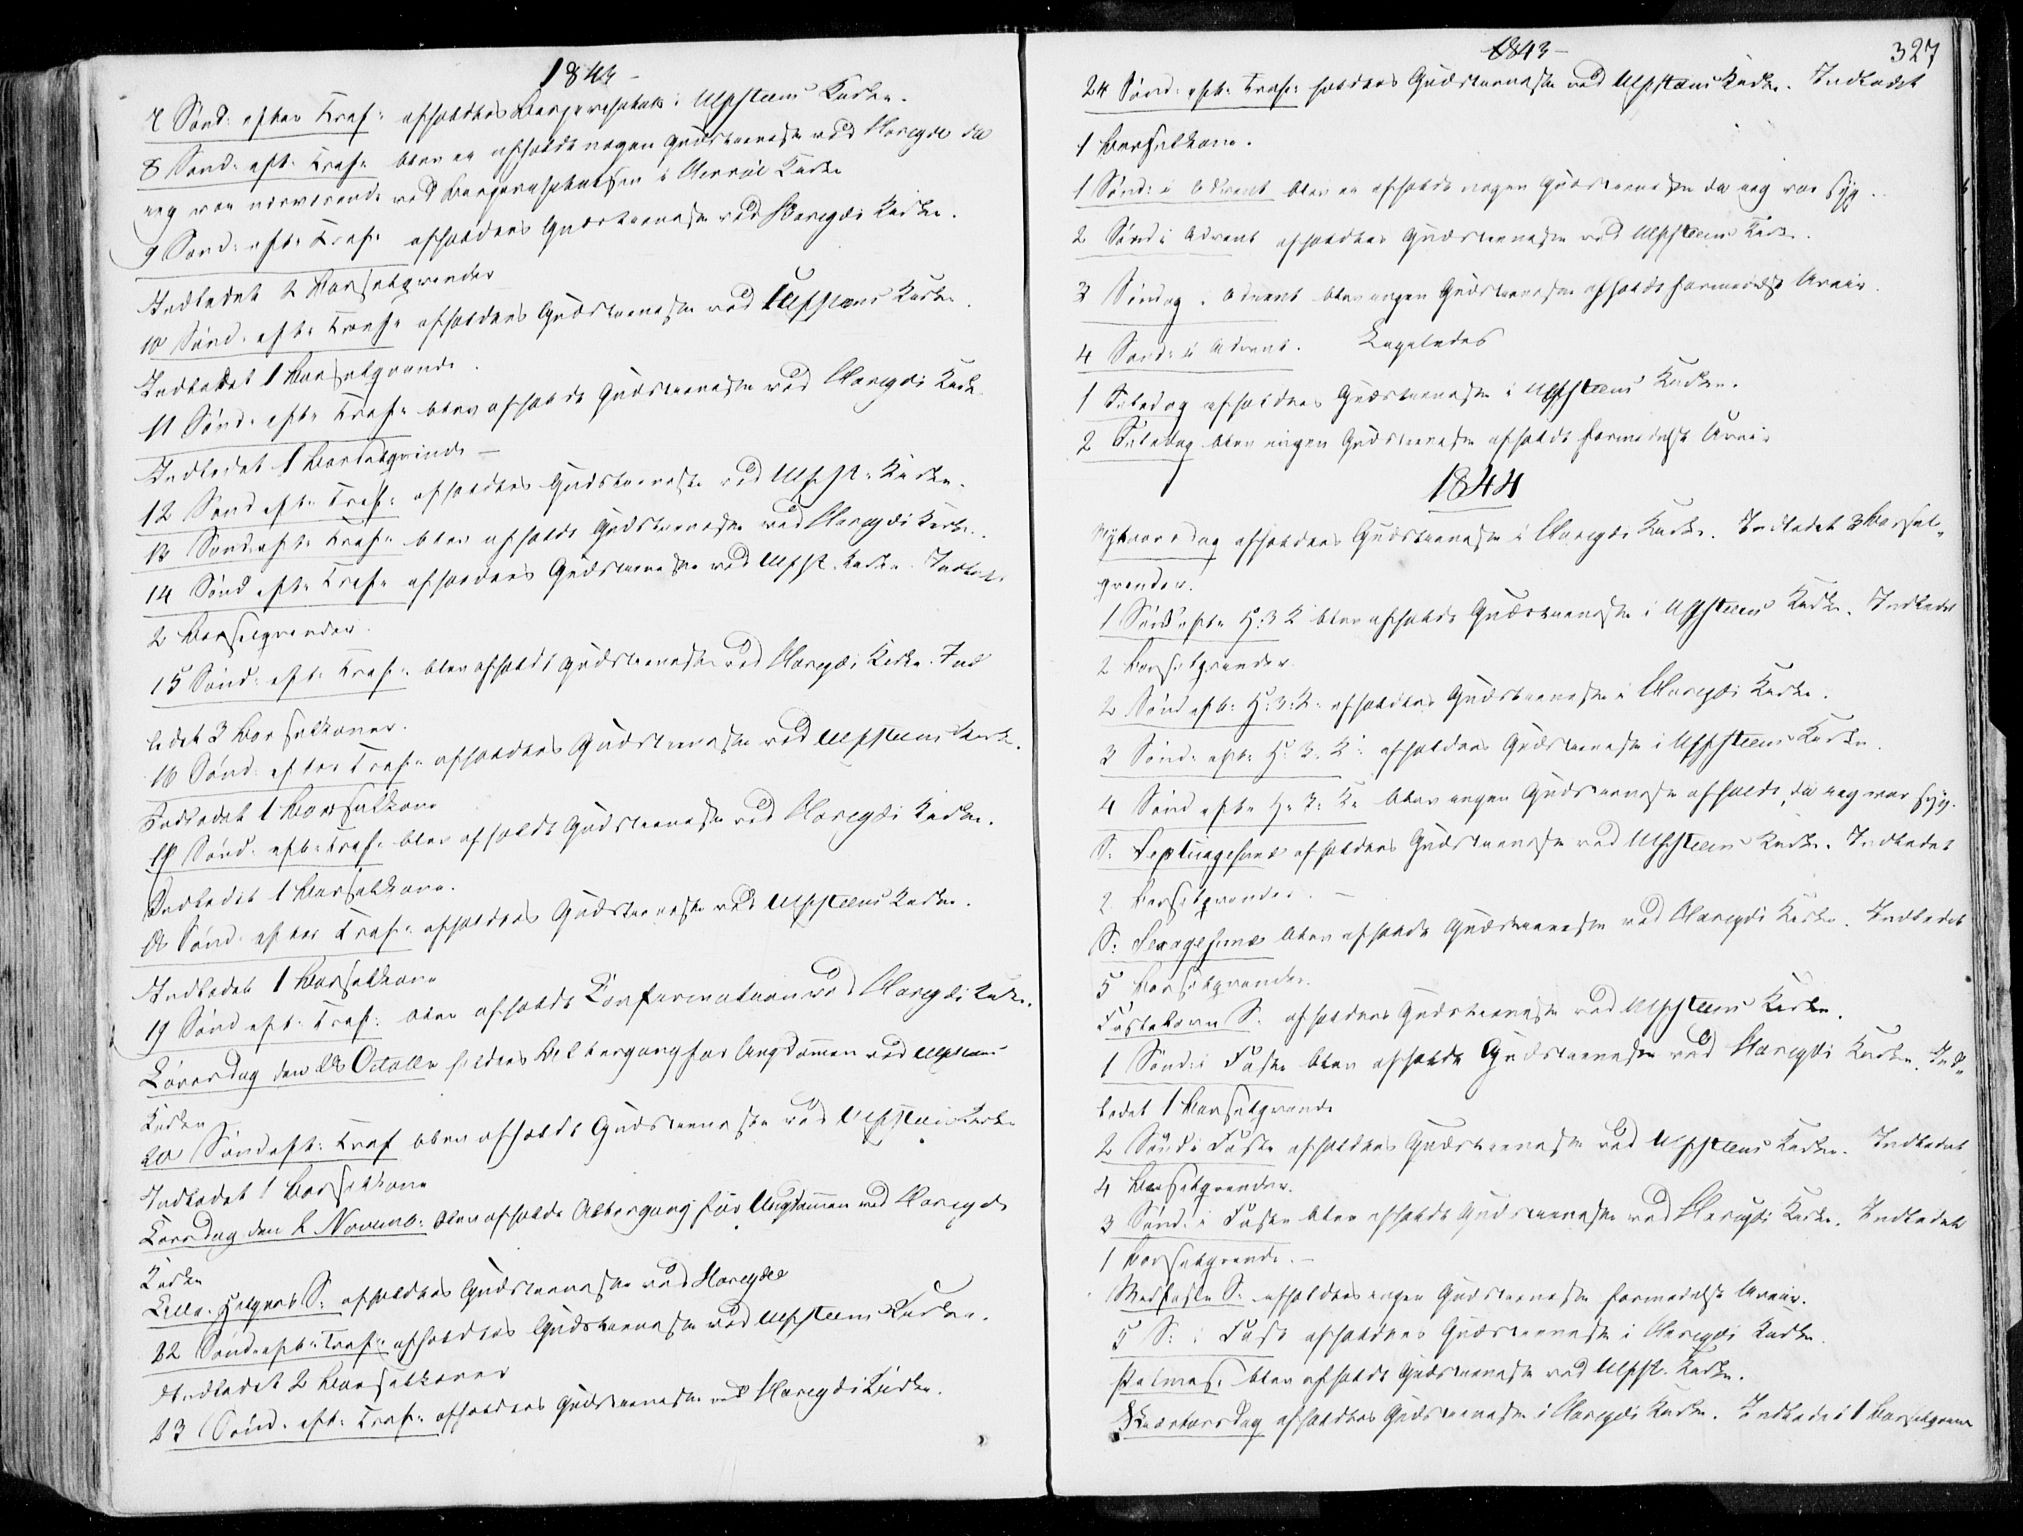 1843 –
7 Sønd: efter Tref: afholdtes i Ulfsteens Kirke.
8 Sønd: eft: Tref: blev ei afholdt nogen Gudstieneste ved Norigde da
jeg var nærværende ved i Kirke
9 Sønd: eft: Tref: afholdtes Gudstieneste ved Norigdi Kirke.
Indledet 2 Barselqvinder
10 Sønd. eft: Tref: afholdtes Gudstieneste ved Ulfsteens Kirke.
Indledet 1 Barselqvinde.
11 Sønd: eft: Tref: blev afholdt Gudstieneste ved Norigdi Kirke.
Indledet 1 Barselqvinde –
12 Sønd eft: Tref: afholdtes Gudstieneste ved Ulfst: Kirke.
13 Sønd eft: Tref: blev afholdt Gudstieneste ved Norigdi Kirke.
14 Sønd eft: Tref: afholdtes Gudstieneste ved Ulfst. Kirke. Indled:
2 Barselqvinder.
15 Sønd: eft: Tref: blev afholdt Gudstieneste ved Norigdi Kirke. Ind
ledet 3 Barselkoner.
16 Sønd: efter Tref: afholdtes Gudstieneste ved Ulfsteens Kirke.
Indledet 1 Barselkone
17 Sønd: eft: Tref: blev afholdt Gudstieneste ved Norigdi Kirke.
Indledet 1 Barselkone.
18 Sønd: efter Tref: afholdtes Gudstieneste ved Ulfsteens Kirke.
Indledet 1 Barselkone
19 Sønd eft: Tref: blev afholdt Confirmation ved Norigdi Kirke.
Løverdag den 28 Octobr holdtes Altergang for Ungdomen ved Ulfsteens
Kirke
20 Sønd eft: Tref blev afholdt Gudstieneste ved Ulfsteens Kirke
Indledet 1 Barselkone
Torsdag den 2 Novemb: blev afholdt Altergang for Ungdomen ved Norigde
Kirke
Alle Helgens S: afholdtes Gudstieneste ved Norigde
22 Sønd: eft: Tref: afholdtes Gudstieneste ved Ulfsteens Kirke.
Indledet 2 Barselkoner
23 Sønd. eft: Tref: afholdtes Gudstieneste ved Norigdi Kirke.
1843 –
327
24 Sønd: eft: Tref: holdtes Gudstieneste ved Ulfsteens Kirke. Indledet
1 Barselkone.
1 Sønd: i Advent blev ei afholdt nogen Gudstieneste da jeg var syg.
2 Sønd i Advent afholdtes Gudstieneste ved Ulfsteens Kirke.
3 Søndag i Advent blev ingen Gudstieneste afholdt formedelst Uveir.
4 Sønd: i Advent. Ligeledes
1 Juledag afholdtes Gudstieneste i Ulfsteens Kirke.
2 Juledag blev ingen Gudstieneste afholdt formedelst Uveir
1844
Nytaarsdag afholdtes Gudstieneste i Norigdi Kirke. Indledet 3 Barsel-
qvinder.
1 Sønd eft: H: 3 K blev afholdt Gudstieneste i Ulfsteens Kirke. Indledet
2 Barselqvinder.
2 Sønd eft: H: 3: K: afholdtes Gudstieneste i Norigdi Kirke.
3 Sønd: eft: H: 3. K: afholdtes Gudstieneste i Ulfsteens Kirke.
4 Sønd eft: H: 3: K: blev ingen Gudstieneste afholdt, da jeg var syg.
S: Septuagesima afholdtes Gudstieneste ved Ulfsteens Kirke. Indledet
2 Barselqvinder. –
S: Sexagesima blev afholdt Gudstieneste ved Norigdi Kirke. Indledet
5 Barselqvinder.
Fastelavns S: afholdtes Gudstieneste ved Ulfsteens Kirke.
1 Sønd: i Faste blev afholdt Gudstieneste ved Norigdi Kirke. Ind-
ledet 1 Barselqvinde
2 Sønd i Faste afholdtes Gudstieneste ved Ulfsteens Kirke. Indledet
4 Barselqvinder.
3 Sønd: i Faste blev afholdt Gudstieneste ved Norigdi Kirke. Indledet
1 Barselqvinde. –
Midfaste S: afholdtes ingen Gudstieneste formedelst Uveir.
5 S: i Faste afholdtes Gudstieneste i Norigdi Kirke.
Palmes: blev afholdt Gudstieneste ved Ulfst. Kirke.
Skiærtorsdag afholdtes Gudstieneste i Norigdi Kirke. Indledet 1 Barselqvinde